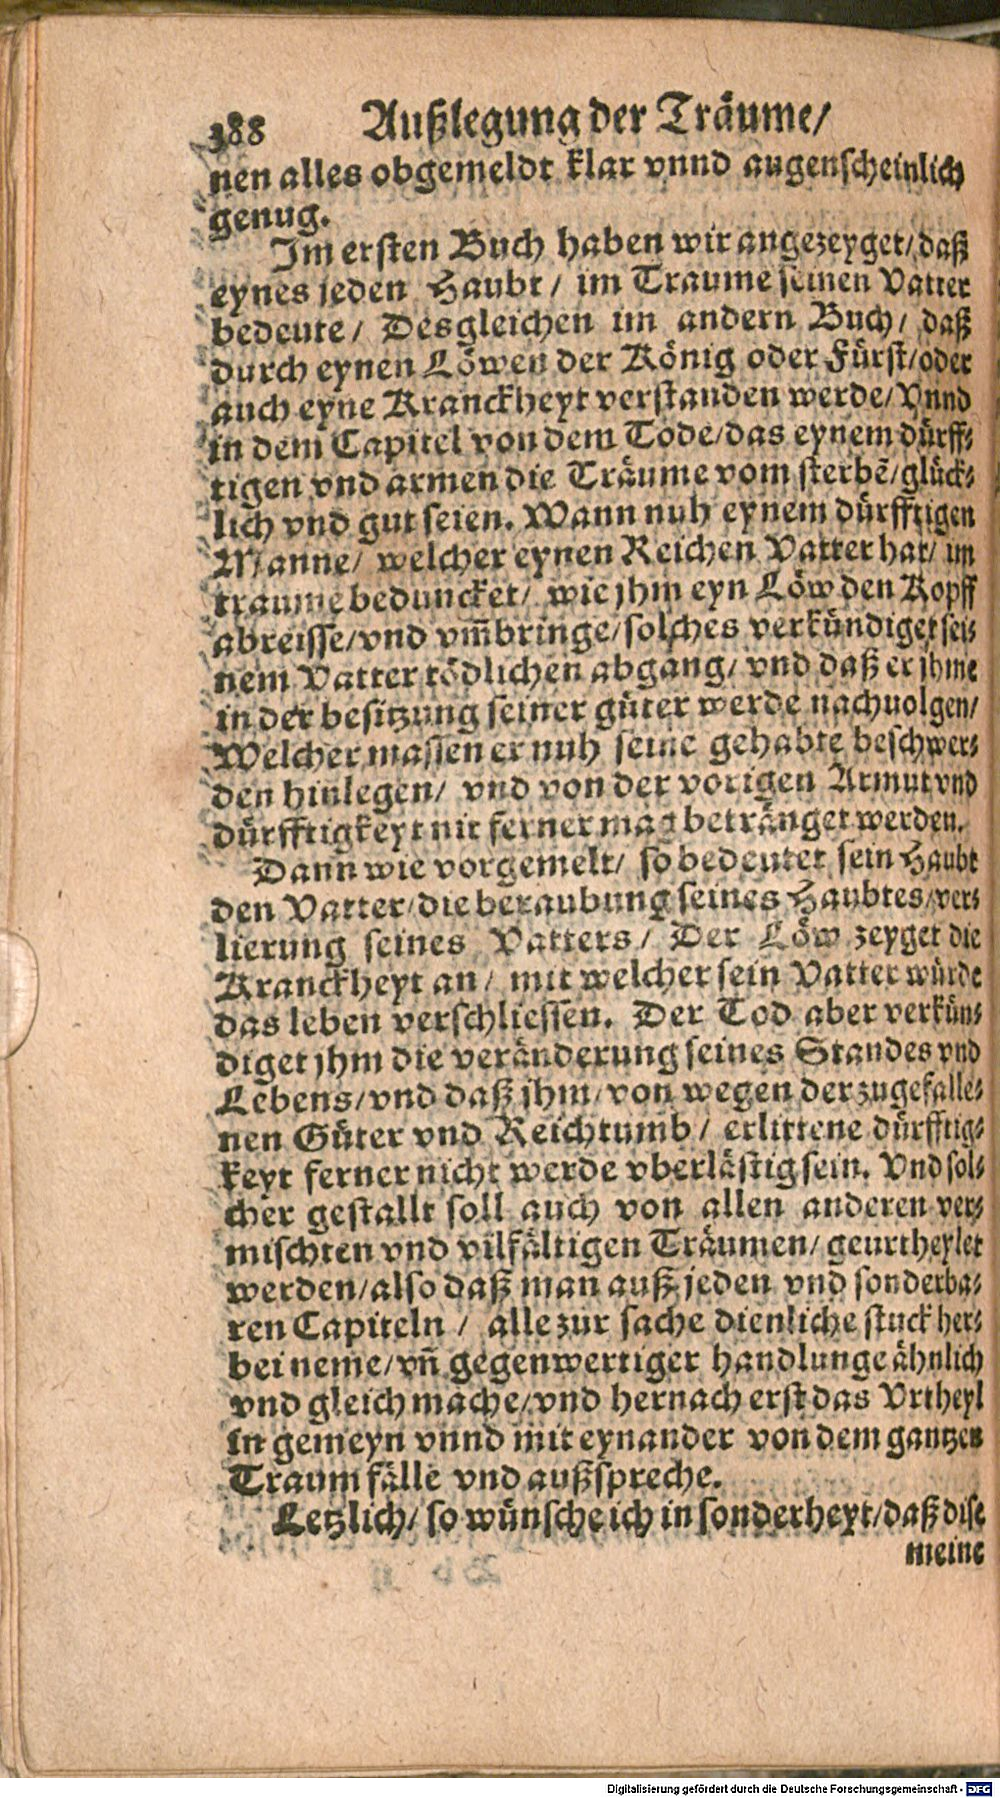 388 Außlegung der Träume/
nen alles obgemeldt klar vnnd augenscheinlich
genug.
Im ersten Buch haben wir angezeyget/ daß
eynes jeden Haubt/ im Traume seinen Vatter
bedeute/ Desgleichen im andern Buch/ daß
durch eynen Löwen der König oder Fürst/ oder
auch eyne Kranckheyt verstanden werde/ Vnnd
in dem Capitel von dem Tode/ das eynem dürff⸗
tigen vnd armen die Träume vom sterbẽ/ glück⸗
lich vnd gut seien. Wann nuh eynem dürfftigen
Manne/ welcher eynen Reichen Vatter hat/ im
traume beduncket/ wie jhm eyn Löw den Kopff
abreisse/ vnd vm̃bringe/ solches verkündiget sei⸗
nem Vatter tödlichen abgang/ vnd daß er jhme
in der besitzung seiner güter werde nachuolgen/
Welcher massen er nuh seine gehabte beschwer⸗
den hinlegen/ vnd von der vorigen Armut vnd
dürfftigkeyt nit ferner mag betränget werden.
Dann wie vorgemelt/ so bedeutet sein Haubt
den Vatter/ die beraubung seines Haubtes/ ver⸗
lierung seines Vatters/ Der Löw zeyget die
Kranckheyt an/ mit welcher sein Vatter würde
das leben verschliessen. Der Tod aber verkün⸗
diget jhm die veränderung seines Standes vnd
Lebens/ vnd daß jhm/ von wegen der zugefalle⸗
nen Güter vnd Reichtumb/ erlittene dürfftig⸗
keyt ferner nicht werde vberlästig sein. Vnd sol⸗
cher gestallt soll auch von allen anderen ver⸗
mischten vnd vilfältigen Träumen/ geurtheylet
werden/ also daß man auß jeden vnd sonderba⸗
ren Capiteln/ alle zur sache dienliche stuck her⸗
bei neme/ vñ gegenwertiger handlunge ähnlich
vnd gleich mache/ vnd hernach erst das Vrtheyl
in gemeyn vnnd mit eynander von dem gantzen
Traum fälle vnd außspreche.
Letzlich/ so wünsche ich in sonderheyt/ daß dise
meine
Digitalisierung gefördert durch die Deutsche Forschungsgemeinschaft - DFG